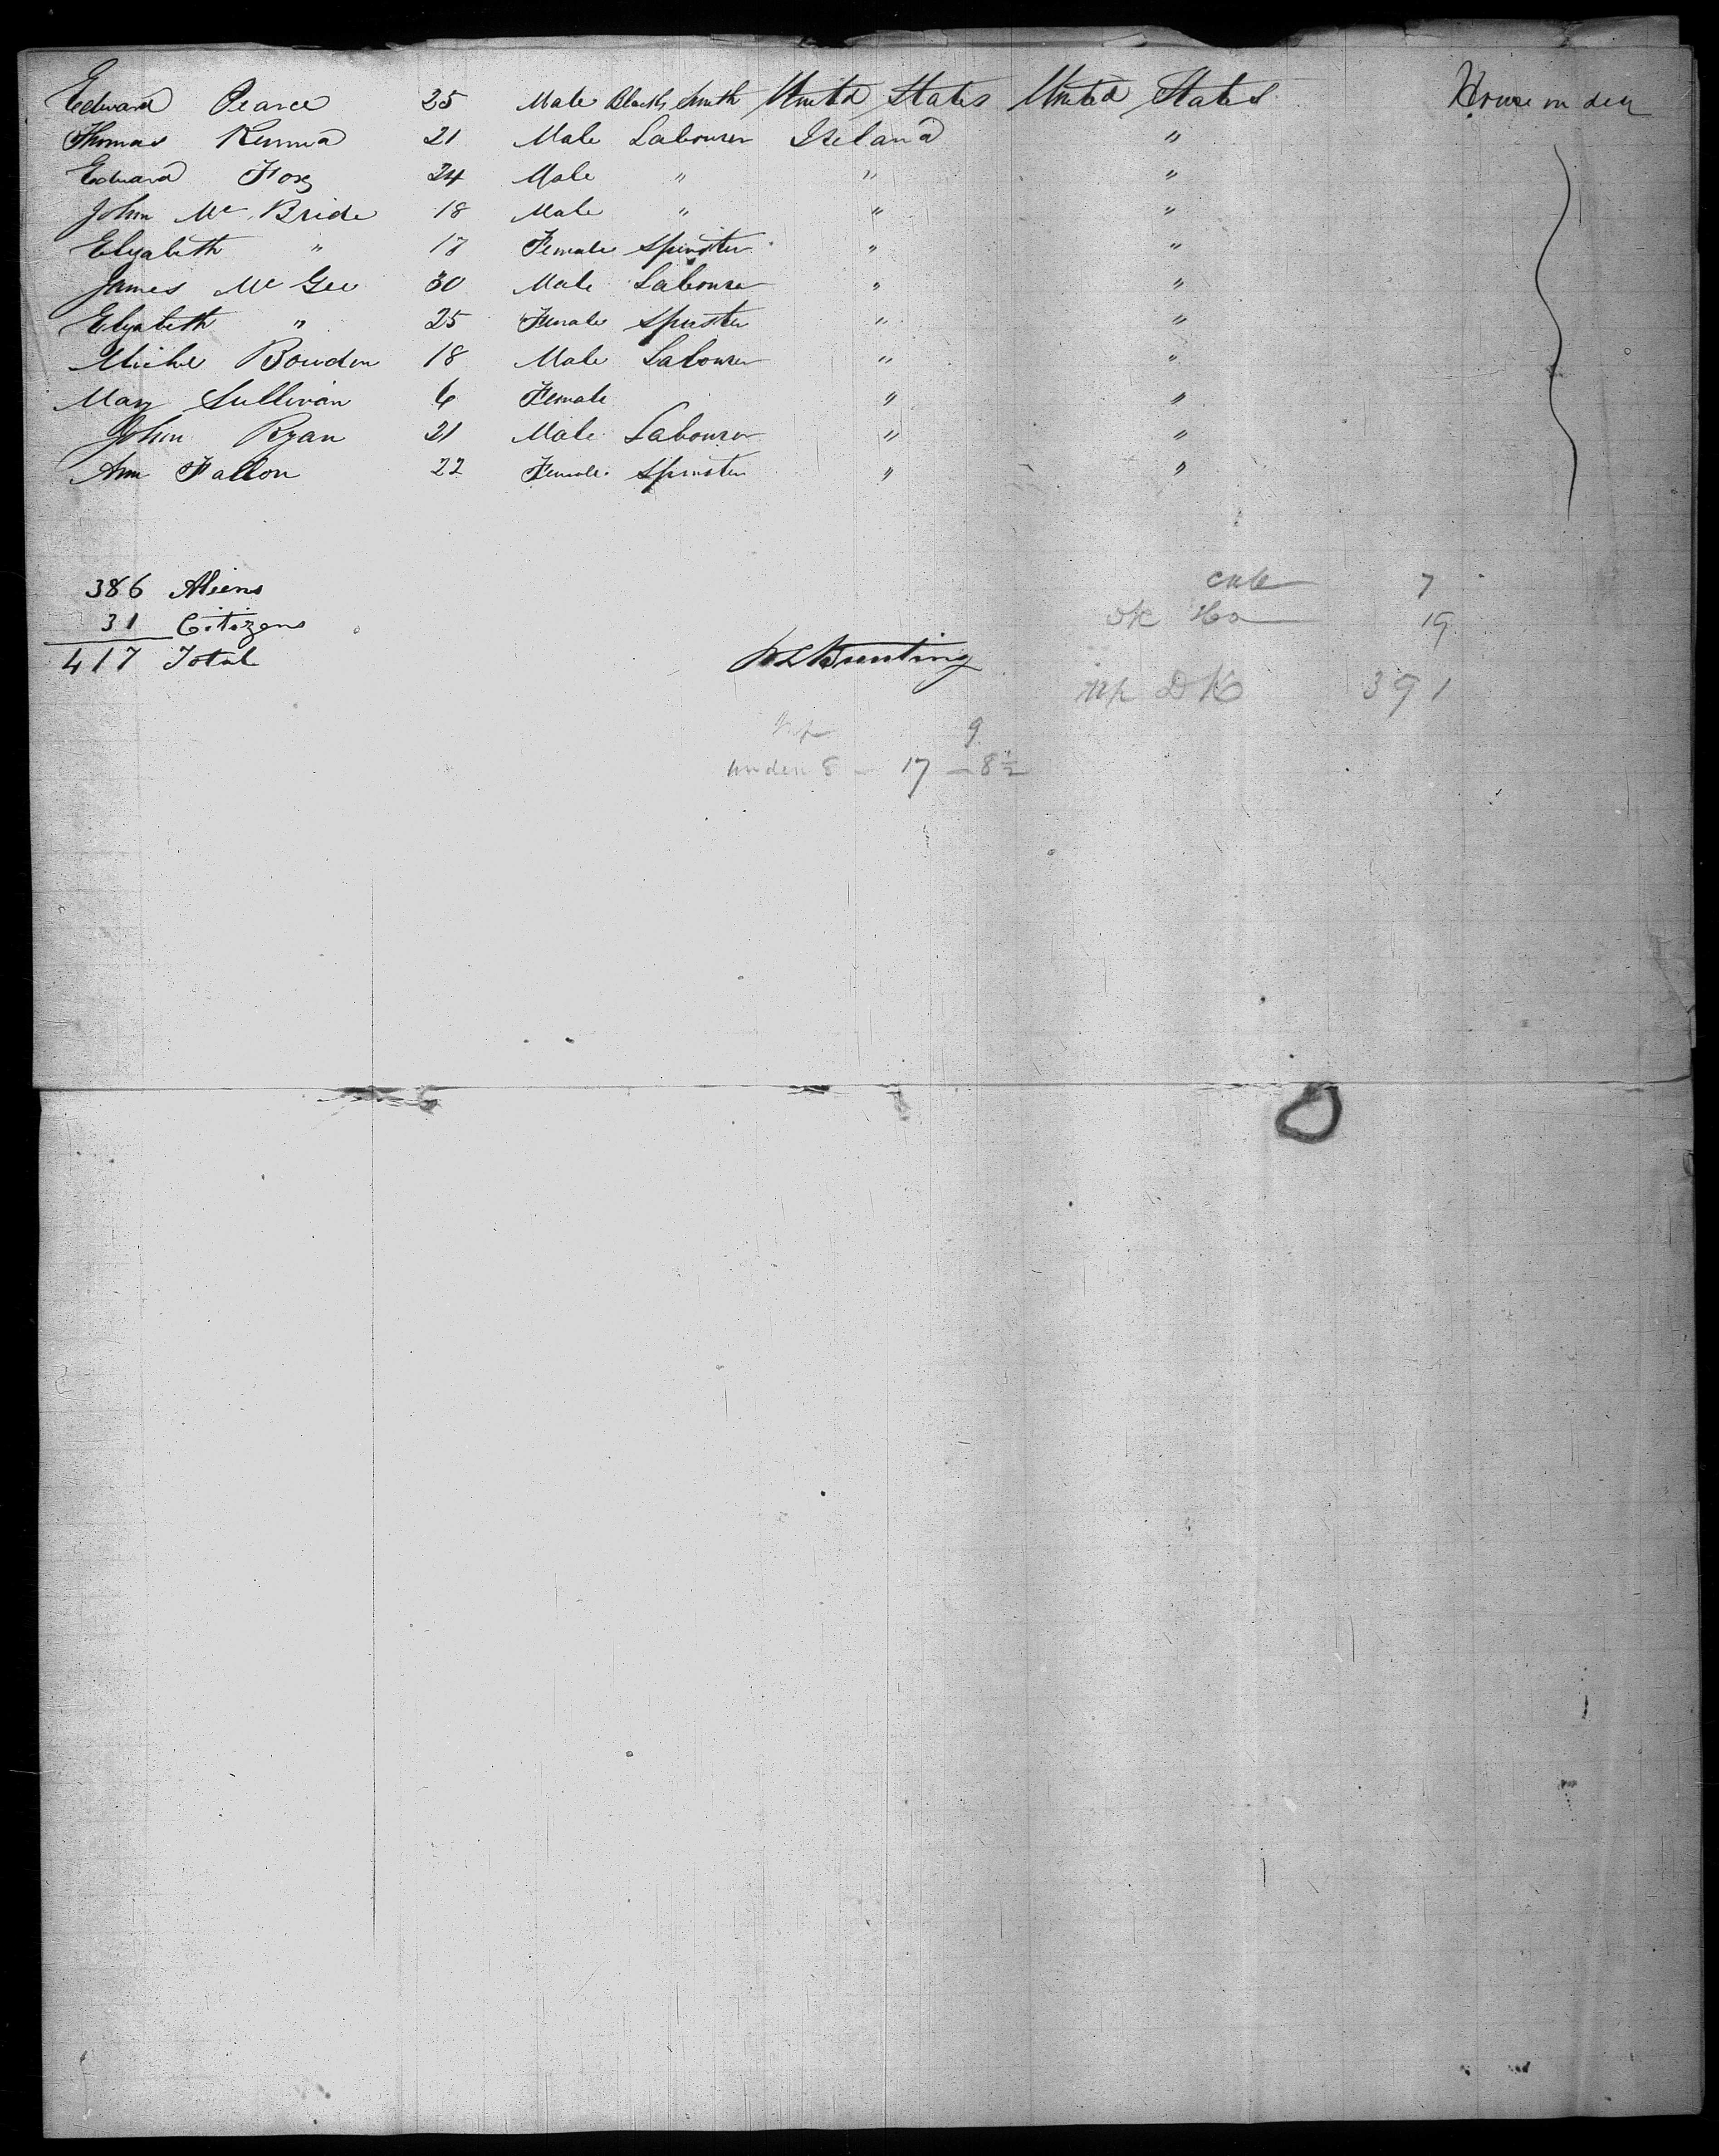 Edward Pearce 25 Male Black Smith United States United States House on deck
Thomas 21 Male Labourer Ireland "
Edward 24 Male " " "
John Mc Bride 18 Male " " "
Elizabeth " 17 Female Spinster " "
James Mc Gee 30 Male Labourer " "
Elizabeth " 25 Female Spinster " "
Michel Bowden 18 Male Labourer " "
Mary Sullivan 6 Female " "
John Ryan 21 Male Labourer " "
Ann Fallon 22 Female Spinster " "
386 Aliens
31 Citizens
417 Total
Bunting
cab 7
DK Ho 19
up DK 391
9
under 8 - 17 - 8½